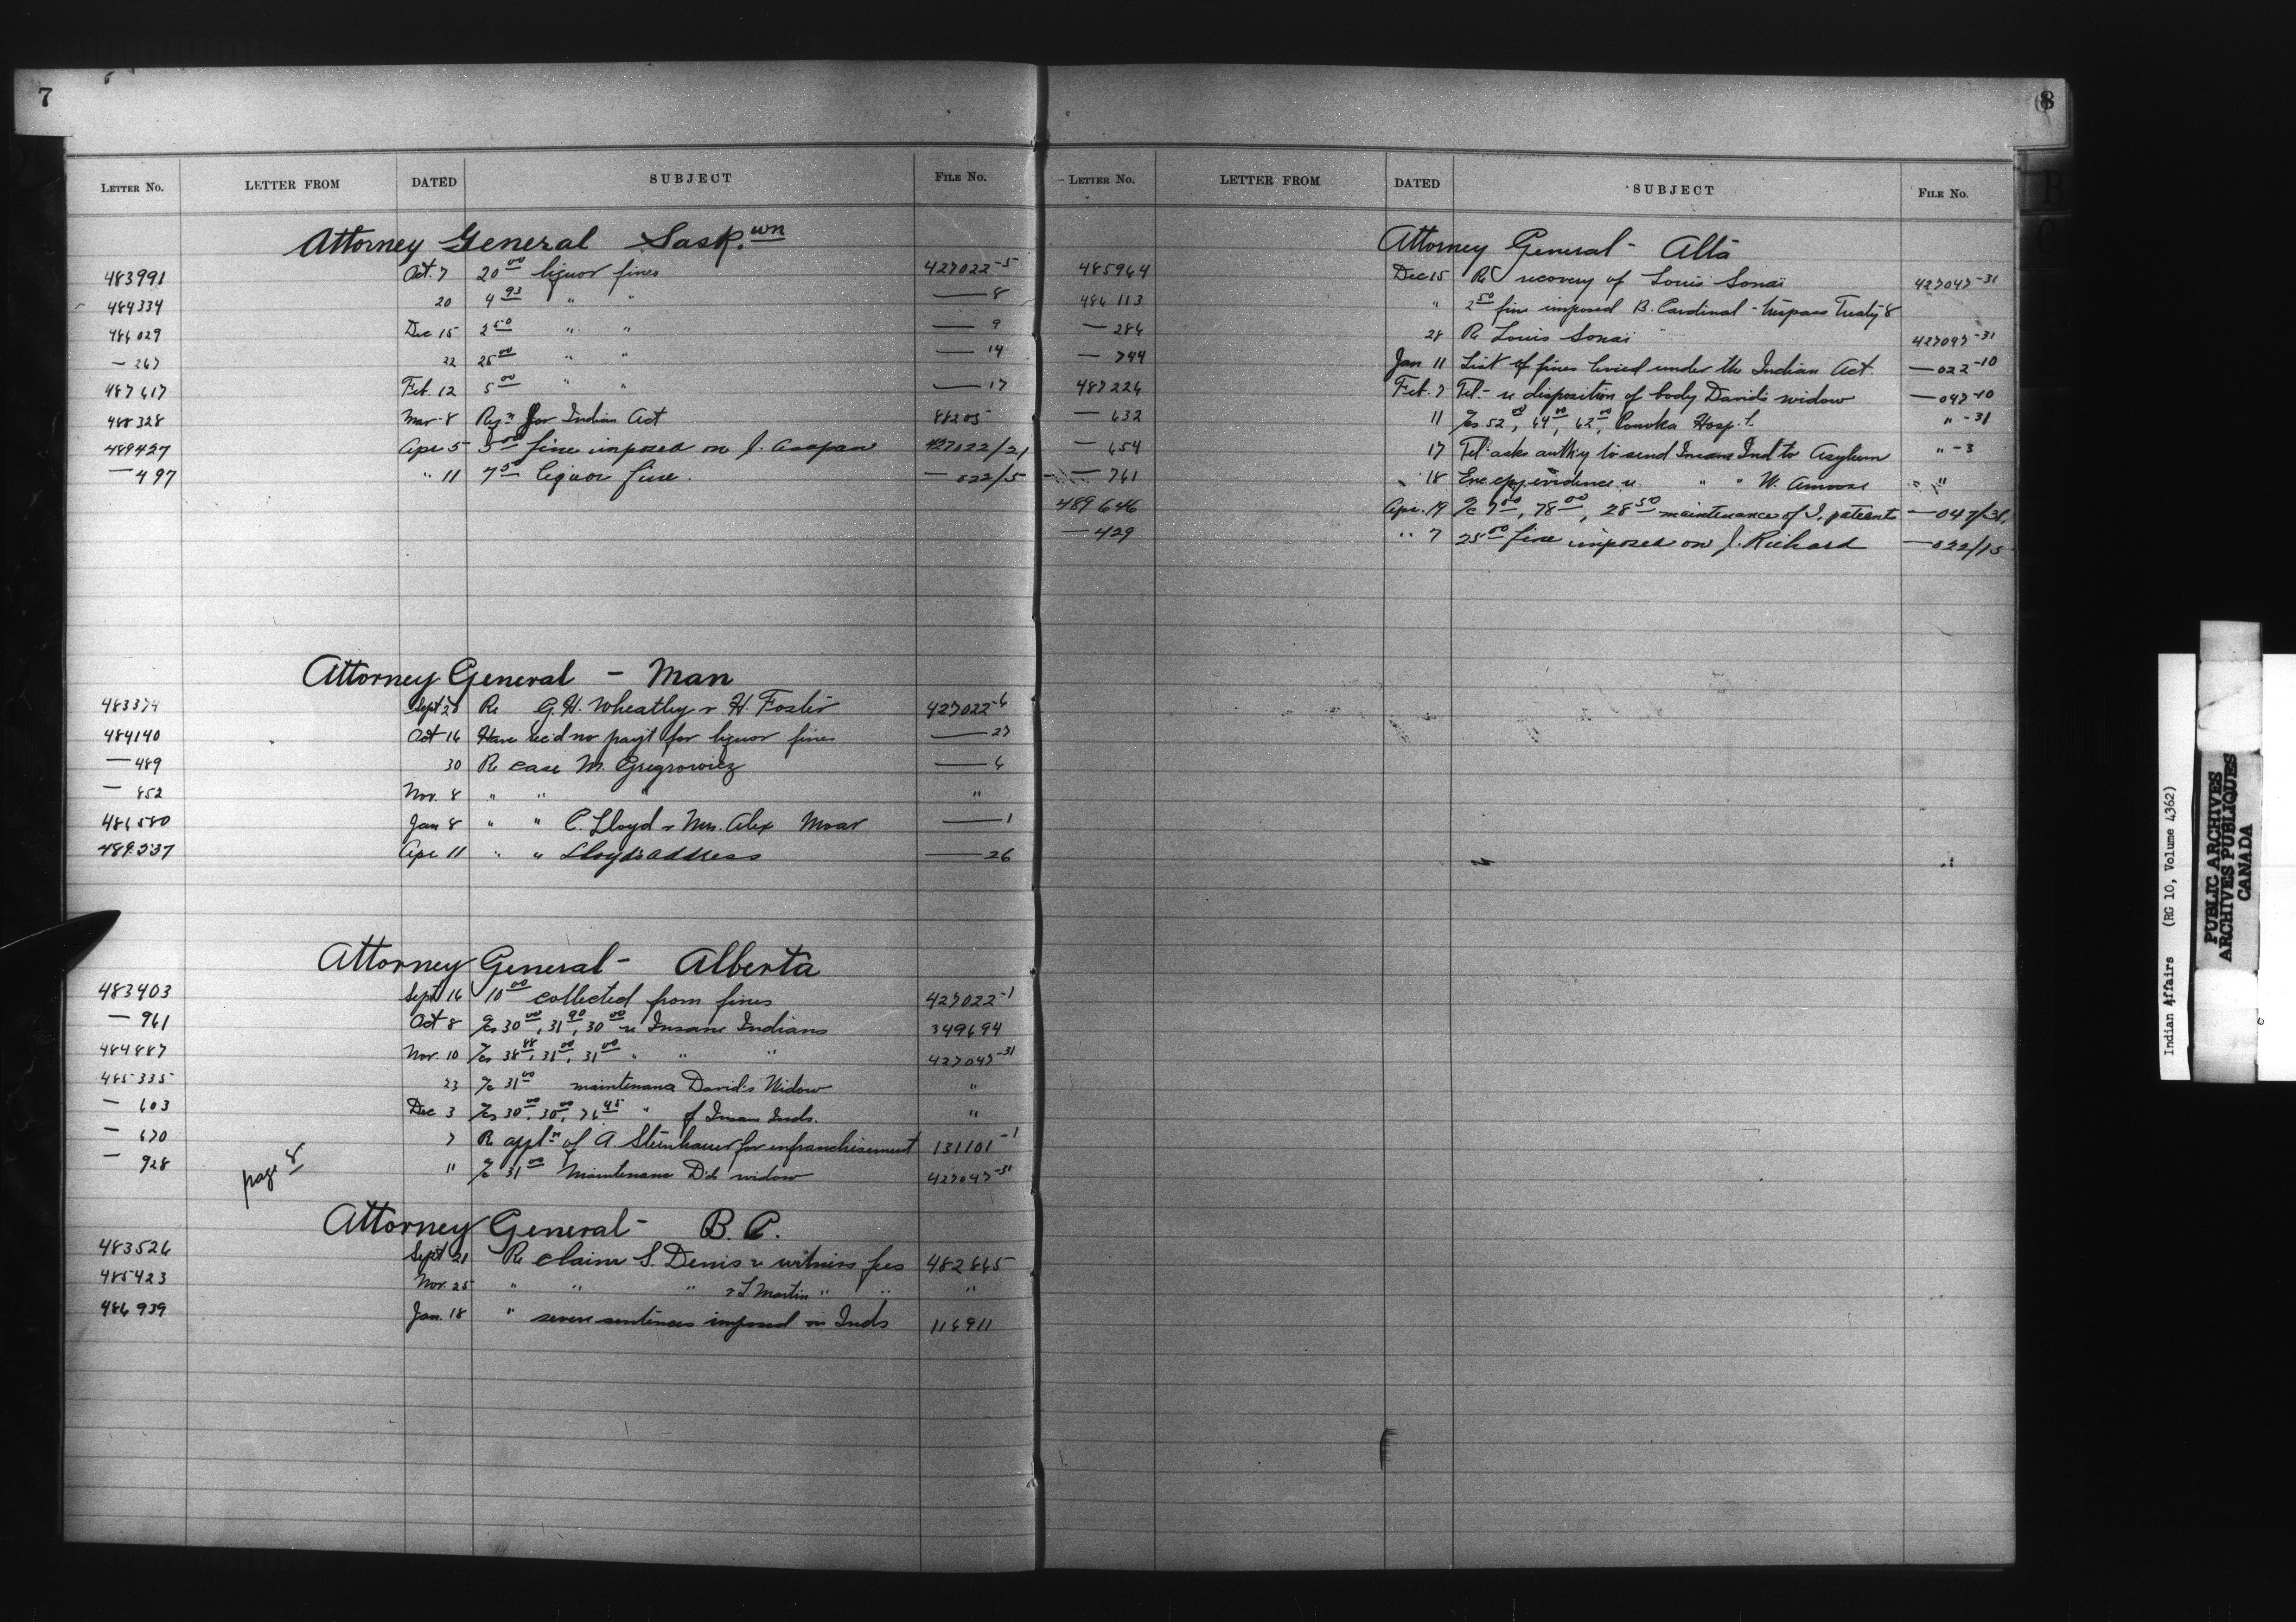 7
LETTER NO. LETTER FROM DATED SUBJECT FILE No.
Attorney General Sask.wn
483991 Oct. 7 20 00 liquor fines 427022-5
484334 20 4 93 " " — 8
486029 Dec 15 2 50 " " — 9
— 267 22 25 00 " " — 14
487617 Feb. 12 5 00 " " — 17
488328 Mar 8 Reqn for Indian Act 88205
489427 Apr 5 5 00 fine imposed on J. 427022/21
— 497 " 11 7 50 liquor fine. — 022/5
Attorney General - Man
483374 Sept 20 Re G.H. Wheatley & H. Foster 427022-6
484140 Oct 16 Have rec'd no pay't for liquor fines — 27
— 489 30 Re case M. Gregrowicz — 6
— 852 Nov. 8 " " " "
486580 Jan 8 " " C. Lloyd & Mrs. Alex Moar — 1
489537 Apr 11 " " Lloyd's address — 26
Attorney General - Alberta
483403 Sept 16 10 00 collected from fines 427022-1
— 961 Oct 8 30 00, 31 90, 30 00 re Insane Indians 349694
484887 Nov. 10 38 88, 31 00, 31 00 " " " 427047-31
485335 23 31 00 maintenance David's Widow "
— 603 Dec 3 30 00, 30 00, 76 45 " of Insane Inds. "
— 670 7 Re appln of A. Steinhauer for enfranchisement 131101-1
— 928 11 31 00 Maintenance D's widow 427047-31
page 8
Attorney General - B.C.
483526 Sept 21 Re claim S. Denis re witness fees 482865
485423 Nov. 25 " " " & L Martin " " "
486939 Jan. 18 " severe sentences imposed on Inds 116911
8
LETTER No. LETTER FROM DATED SUBJECT FILE No.
Attorney General - Alta
485964 Dec 15 Re recovery of Louis Sonai 427047-31
486113 " 2 50 fine imposed B. Cardinal - trespass Treaty 8
— 286 28 Re Louis Sonai 427047-31
— 744 Jan 11 List of fines levied under the Indian Act. — 022-10
487226 Feb. 7 Tel. - re disposition of body David's widow — 047-10
— 632 11 52 00, 64 00, 62 00, Ponoka Hosp't. " -31
— 654 17 Tel. asks auth'y to send Insane Ind to Asylum " -3
— 761 18 Enc. cpy. evidence re " " W. " "
489646 Apr. 19 7 00, 78 00, 28 50 maintenance of I. patients — 047/31.
— 429 " 7 25 00 fine imposed on J. Richard — 022/15
Indian Affairs (RG 10, Volume 4362)
PUBLIC ARCHIVES
ARCHIVES PUBLIQUES
CANADA